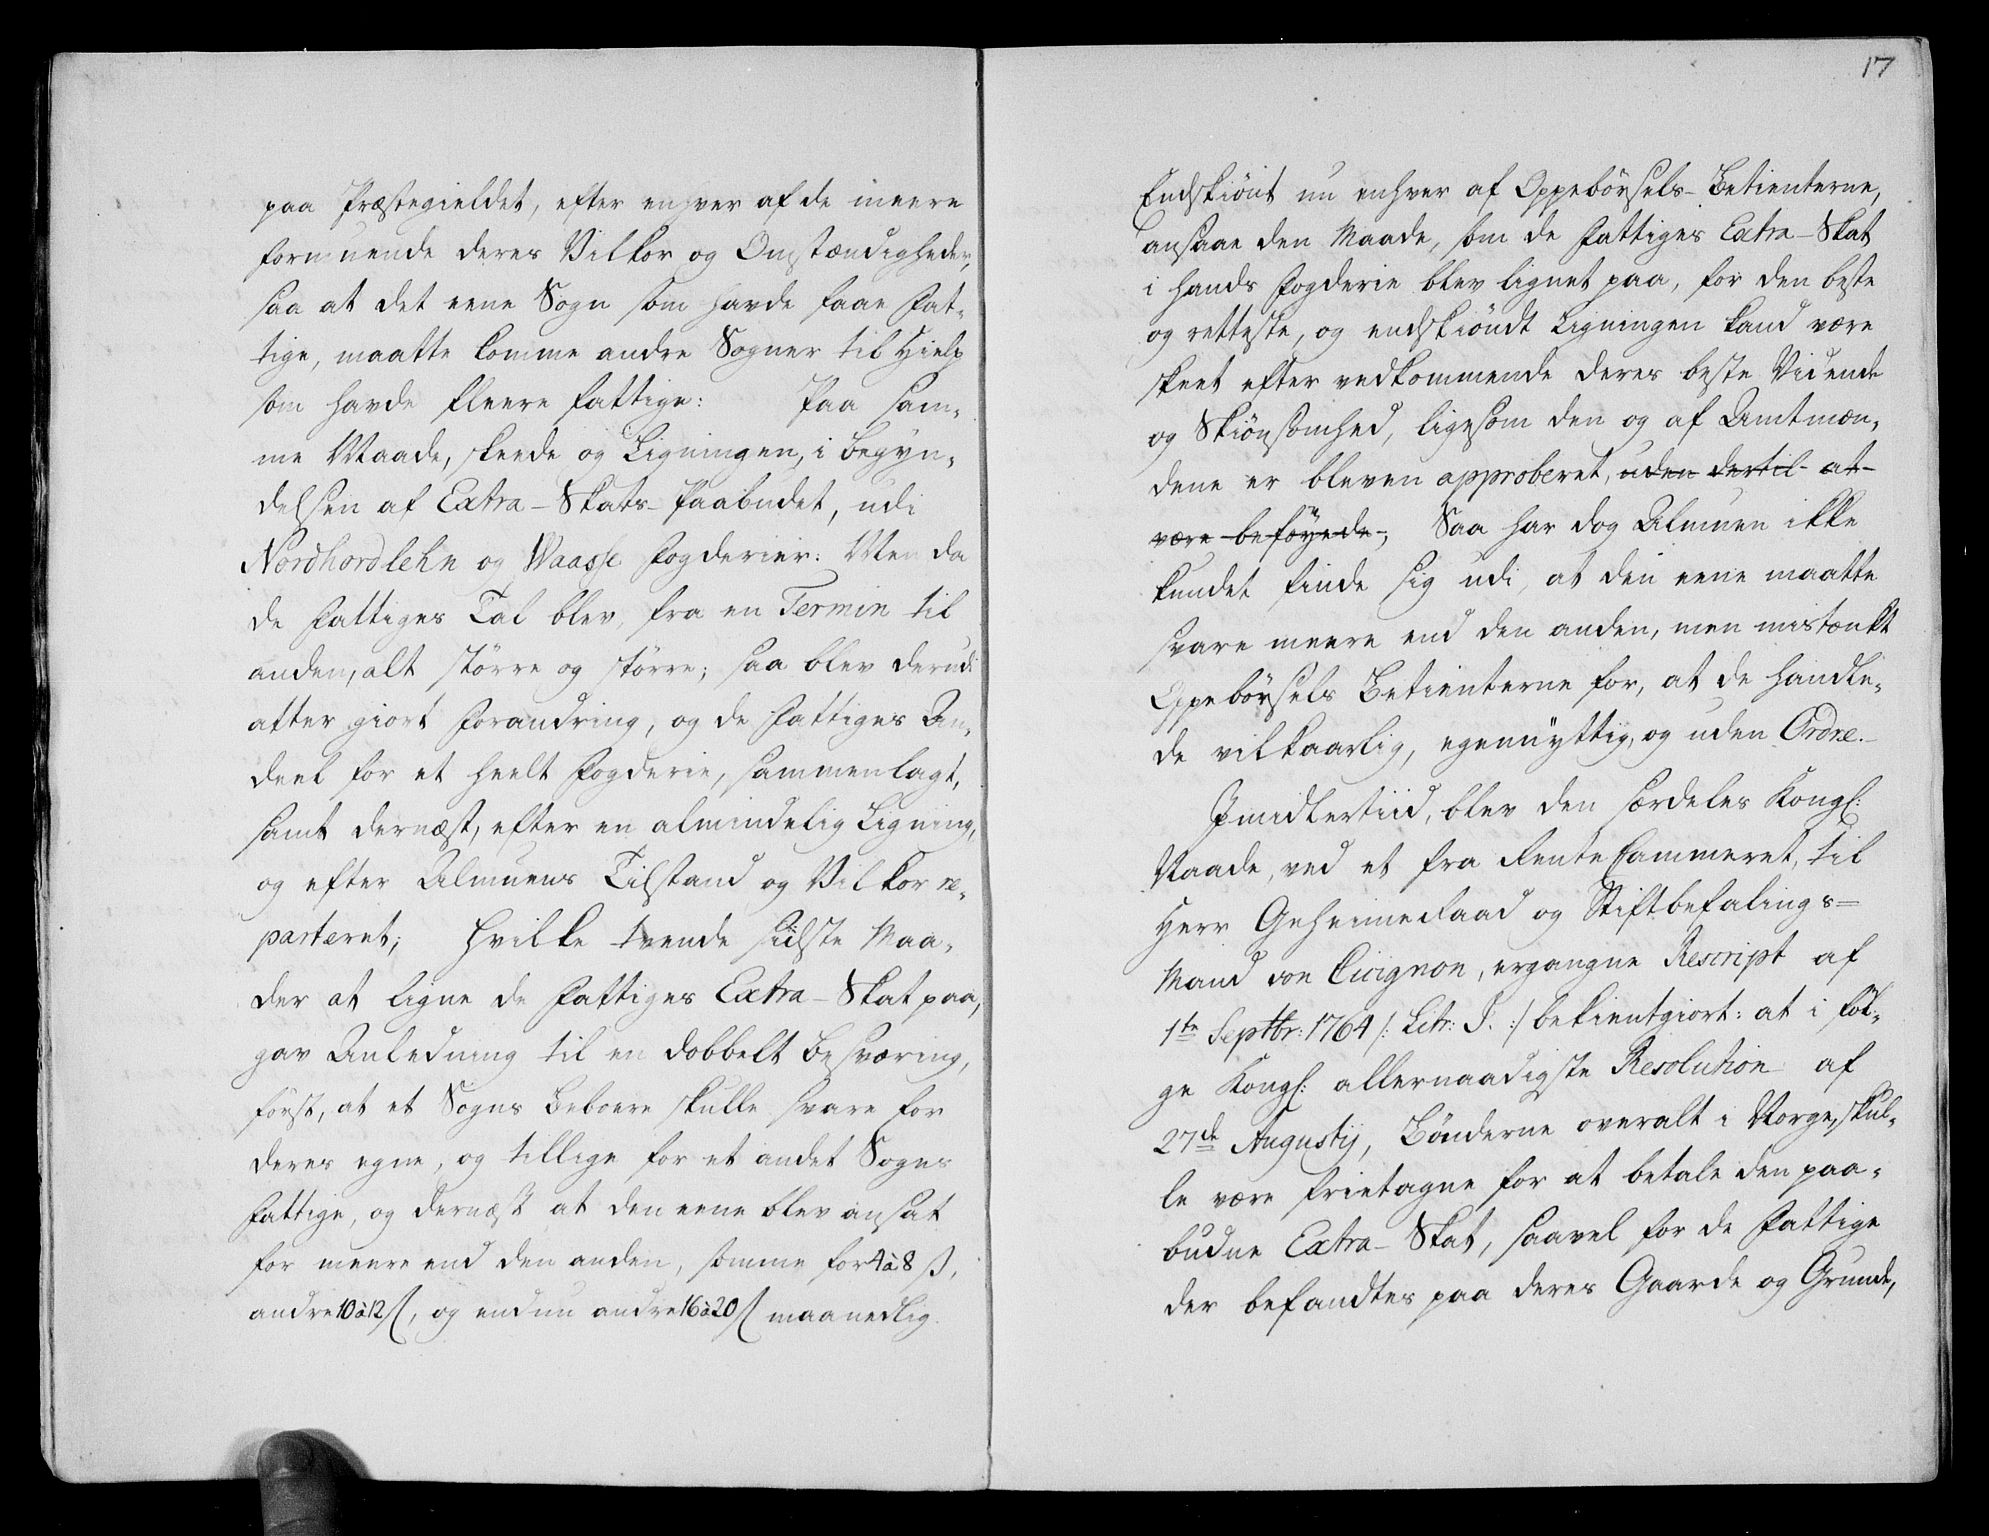 paa Præstegieldet, efter enhver af de meere
formuende deres Vilkor og Omstændigheder,
saa at det eene Sogn som havde faae Fat-
tige, maatte komme andre Sogner til Hielp
som havde fleere fattige: Paa sam-
me Maade, skeede og Ligningen, i begyn-
delsen af Extra-Skats-Paabudet, udi
Nordhordlehn og Waasse Fogderier: Men da
de Fattiges Tal blev, fra en Termin til
anden, alt större og större; saa blev derudi
atter giort Forandring, og de Fattiges An-
deel for et heelt Fogderie, sammenlagt,
samt dernæst, efter en almindelig Ligning,
og efter Almuens Tilstand og Vilkor re-
parteret; hvilke tvende sidste Maa-
der at ligne de Fattiges Extra-Skat paa,
gav Anledning til en dobbelt besværing,
först, at et Sogns Beboere skulle svare for
deres egne, og tillige for et andet Sogns
Fattige, og dernæst at den eene blev ansat
for meere end den anden, somme for 4 à 8 ß,
andre 10 à 12 ß, og endnu andre 16 à 20 ß maanedlig.
17
Endskiönt nu enhver af Oppebörsels-Betienterne,
ansaae den Maade, som de Fattiges Extra-Skat
i hands Fogderie blev lignet paa, for den beste
og retteste, og endskiöndt Ligningen kand være
skeet efter vedkommende deres beste Vidende
og Skiönsomhed, ligesom den og af Amtmæn-
dene er bleven approberet, uden dertil at
være beföyede, Saa har dog Almuen ikke
kundet finde sig udi, at den eene maatte
svare meere end den anden, men mistænkt
Oppebörsels Betienterne for, at de handle-
de vilkaarlig, egennyttig, og uden Ordre.
Imidlertiid, blev den særdeles Kongl:
Naade, ved et fra Rente Cammeret, til
Herr Geheimeraad og Stiftbefalings-
Mand von Cicignon, ergangne Rescript af
1te Septbr: 1764 /: Litr: I. :/ bekientgiort: at i föl-
ge Kongl: allernaadigste Resolution af
27de Augustij, Bönderne overalt i Norge, skul-
le være frietagne for at betale den paa-
budne Extra-Skat, saavel for de Fattige
der befandtes paa deres Gaarde og Grunde,